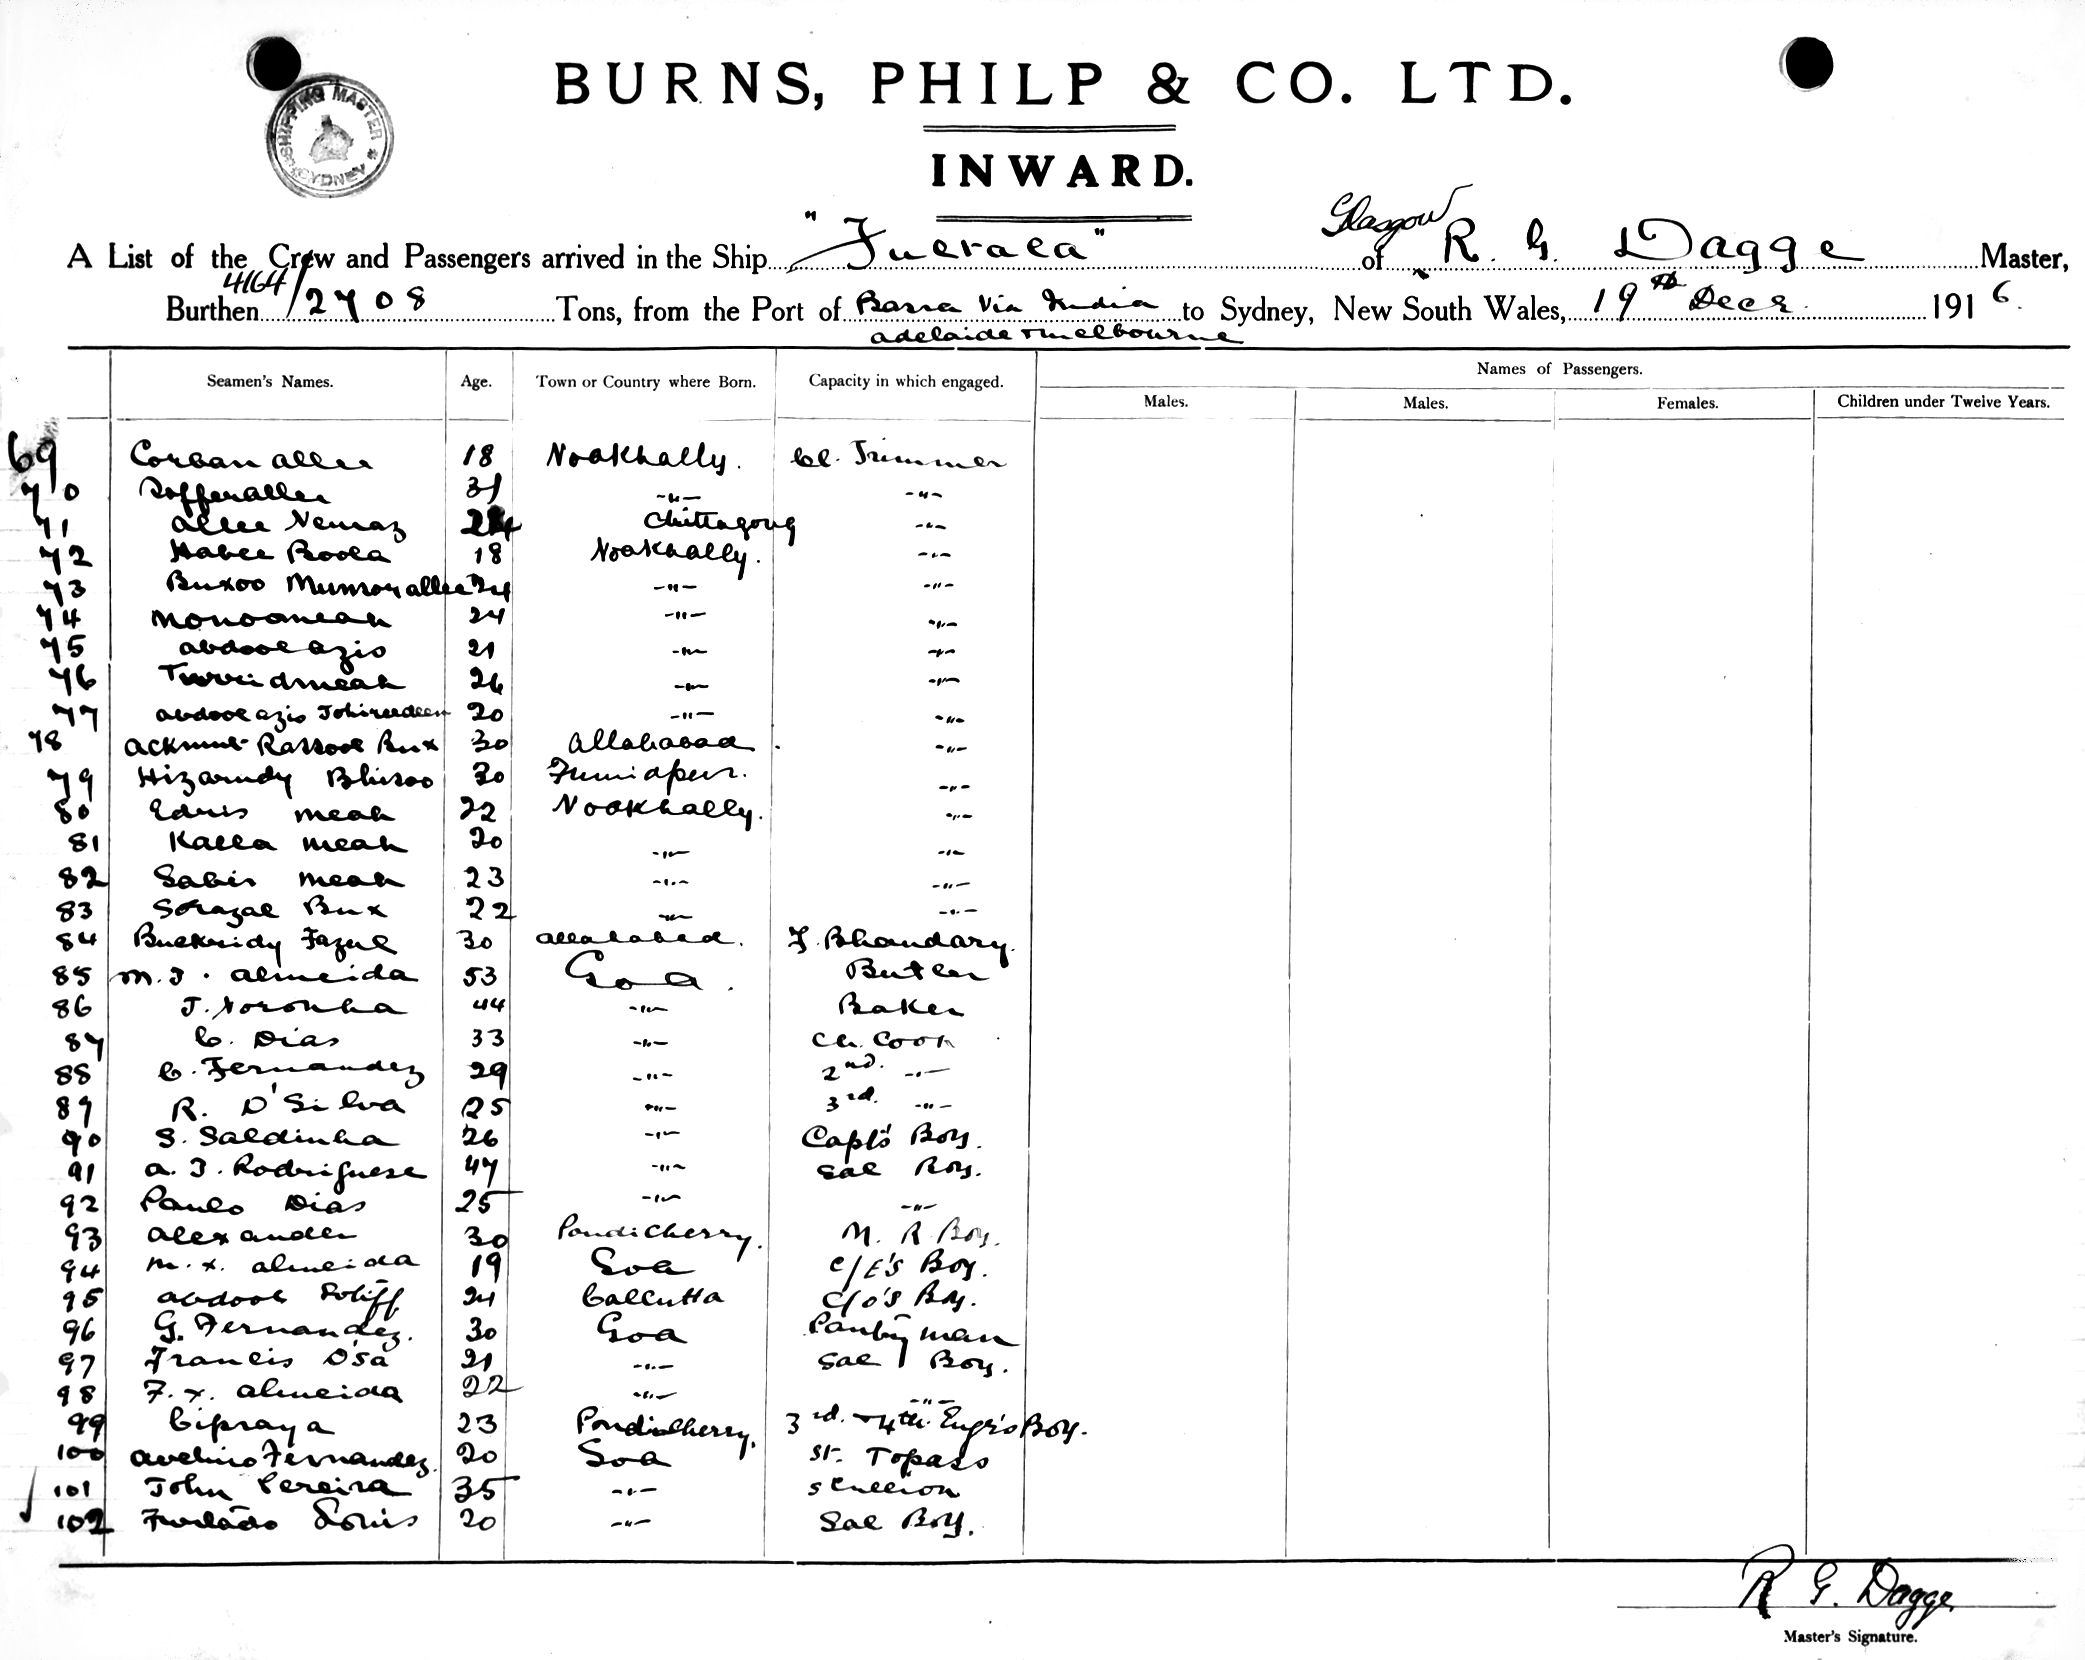 BURNS, PHILP & CO. LTD.
SHIPPING MASTER SYDNEY
INWARD.
A List of the Crew and Passengers arrived in the Ship "Fultala" of Glasgow R. G. Dagge Master,
Burthen 4164/2708 Tons, from the Port of Basra Via India to Sydney, New South Wales, 19th Decr 1916.
adelaide + melbourne
Seamen's Names. Age. Town or Country where Born. Capacity in which engaged. Names of Passengers.
Males. Males. Females. Children under Twelve Years.
69 Corban allee 18 Noakhally. Cl. Trimmer
70 Rofferallee 31 -"- -"-
71 allee Nemaz 24 Chittagong -"-
72 Habee Boola 18 Noakhally. -"-
73 Buxoo Munsorallee 24 -"- -"-
74 Monoomeah 24 -"- -"-
75 abdool azis 21 -"- -"-
76 26 -"- -"-
77 abdool azis 20 -"- -"-
78 Rassool Bux 30 allahabad. -"-
79 Hizarudy 30 -"-
80 Edris meah 22 Noakhally. -"-
81 Kalla meah 20 -"- -"-
82 Sabis meah 23 -"- -"-
83 Bux 22 -"- -"-
84 Fazul 30 allahabad. F. Bhandary.
85 M. J. almeida 53 Goa. Butler
86 J. Noronha 44 -"- Baker
87 C. Dias 33 -"- Ch. Cook
88 C. Fernandez 29 -"- 2nd. -"-
89 R. D'Silva 25 -"- 3rd. -"-
90 S. Saldinha 26 -"- Capt's Boy.
91 a. J. Rodriguese 47 -"- Sal Boy.
92 Paulo Dias 25 -"- -"-
93 alexander 30 Pondicherry. M. R Boy.
94 m. x. almeida 19 Goa C/E's Boy.
95 abdool 24 Callcutta C/O's Boy.
96 G. Fernandez. 30 Goa Pantry man
97 Francis D'sa 21 -"- Sal Boy.
98 F. x. almeida 22 -"- -"-
99 Cipraya 23 Pondicherry. 3rd. + 4th. Engr's Boy.
100 avelino Fernandez. 20 Goa Topass
101 John Pereira 35 -"- scullion
102 Furtado Louis 20 -"- Sal Boy.
R G. Dagge
Master's Signature.